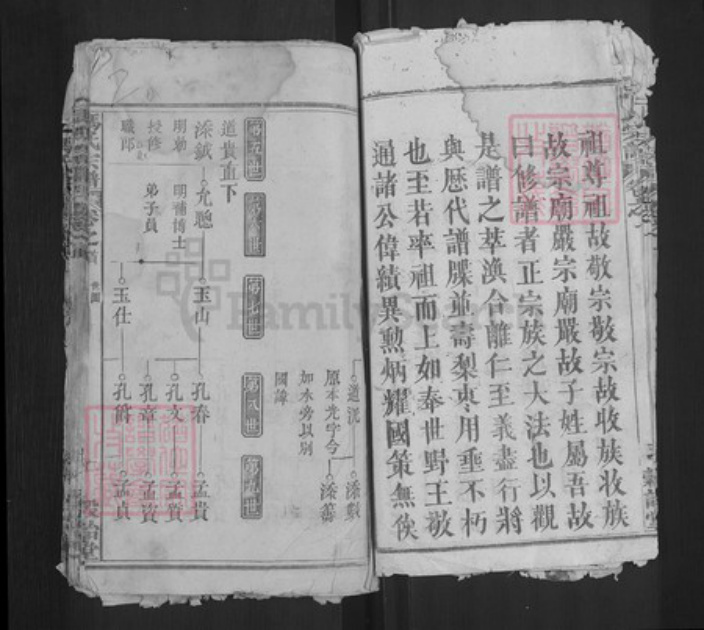 祖尊祖故敬宗敬宗故收族收族
故宗廟嚴宗廟嚴故子姓屬吾故
曰修譜者正宗族之大法也以觀
是譜之萃渙合離仁至義盡行將
與歷代譜牒並壽梨棗用垂不朽
也至若率祖而上如奉世野王敬
通諸公偉績異勳炳耀國策無俟
道洸 添
原本光字今 添
如水旁以別
國諱
第五世
第六世
第七世
第八世
第九世
道貴直下
添鉞 允聰 玉山 孔春 孟貴
明勅 明補博士 孔文 孟質
授修 弟子員 孔章 孟資
職郎 玉仕 孔爵 孟貞
FamilySearch